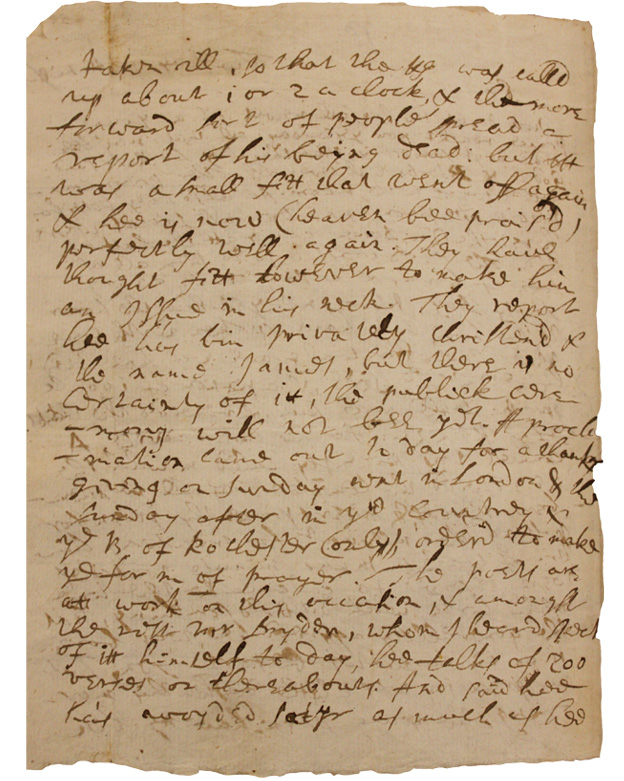 taken ill, so that the Kg was calld
up about 1 or 2 a clock, & the more
forward sort of people spread a
report of his being dead: but itt
was a small fitt that went off again
& hee is now (heaven bee prais'd)
perfectly well again. They have
thought fitt however to make him
an Issue in his neck. They report
hee has bin privately christend &
the name James, but there is no
certainty of it, the publick cere
-mony will not bee yet. A procla
-mation came out to day for a thanks
giving on Sunday next in London & the
Sunday after in ye Countrey &
ye B of Rochester (only) orderd to make
ye form of prayer. The poets are
att work on this occasion, & amongst
the rest Mr Dryden, whom I heard speak
of itt himself to day, hee talks of 700
verses or thereabouts. And said hee
has avoyded satyr as much as hee